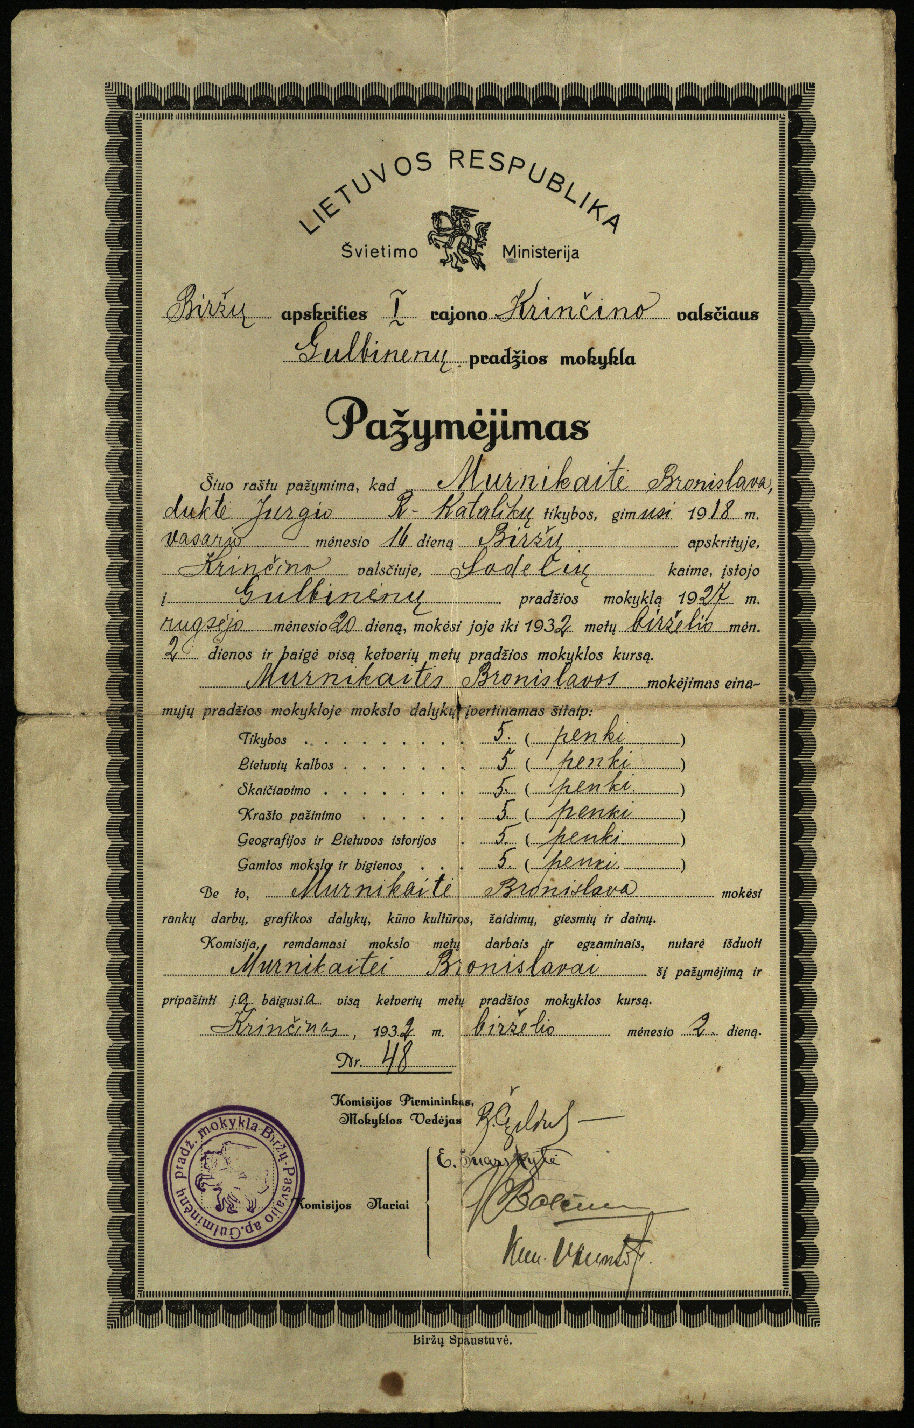 LIETUVOS RESPUBLIKA
Švietimo Ministerija
Biržų apskrities I rajono Krinčino valsčiaus
Gulbinėnų pradžios mokykla
Pažymėjimas
Šiuo raštu pažymima, kad Murnikaitė Bronislava,
duktė Jurgio R-Katalikų tikybos, gimusi 1918 m.
vasario mėnesio 16 dieną Biržų apskrityje,
Krinčino valsčiuje, Sodečių kaime, įstojo
į Gulbinėnų pradžios mokyklą 1927 m.
rugsėjo mėnesio 20 dieną, mokėsi joje iki 1932 metų birželio mėn.
2 dienos ir baigė visą ketverių metų pradžios mokyklos kursą.
Murnikaitės Bronislavos mokėjimas eina-
mųjų pradžios mokykloje mokslo dalykų įvertinamas šitaip:
Tikybos . . . . . . . . . 5. ( penki )
Lietuvių kalbos . . . . . . . 5 ( penki )
Skaičiavimo . . . . . . . . 5. ( penki )
Krašto pažinimo . . . . . . 5 ( penki )
Geografijos ir Lietuvos istorijos . 5. ( penki )
Gamtos mokslo ir higienos . . . 5. ( penki )
Be to, Murnikaitė Bronislava mokėsi
rankų darbų, grafikos dalykų, kūno kultūros, žaidimų, giesmių ir dainų.
Komisija, remdamasi mokslo metų darbais ir egzaminais, nutarė išduoti
Murnikaitei Bronislavai šį pažymėjimą ir
pripažinti ją baigusia visą ketverių metų pradžios mokyklos kursą.
Krinčinas, 1932 m. birželio mėnesio 2 dieną.
Nr. 48
Komisijos Pirmininkas,
Mokyklos Vedėjas
E.
Komisijos Nariai
Kun.
pradž. mokykla Biržų-Pasvalio ap. Gulminėnų
Biržų Spaustuvė.